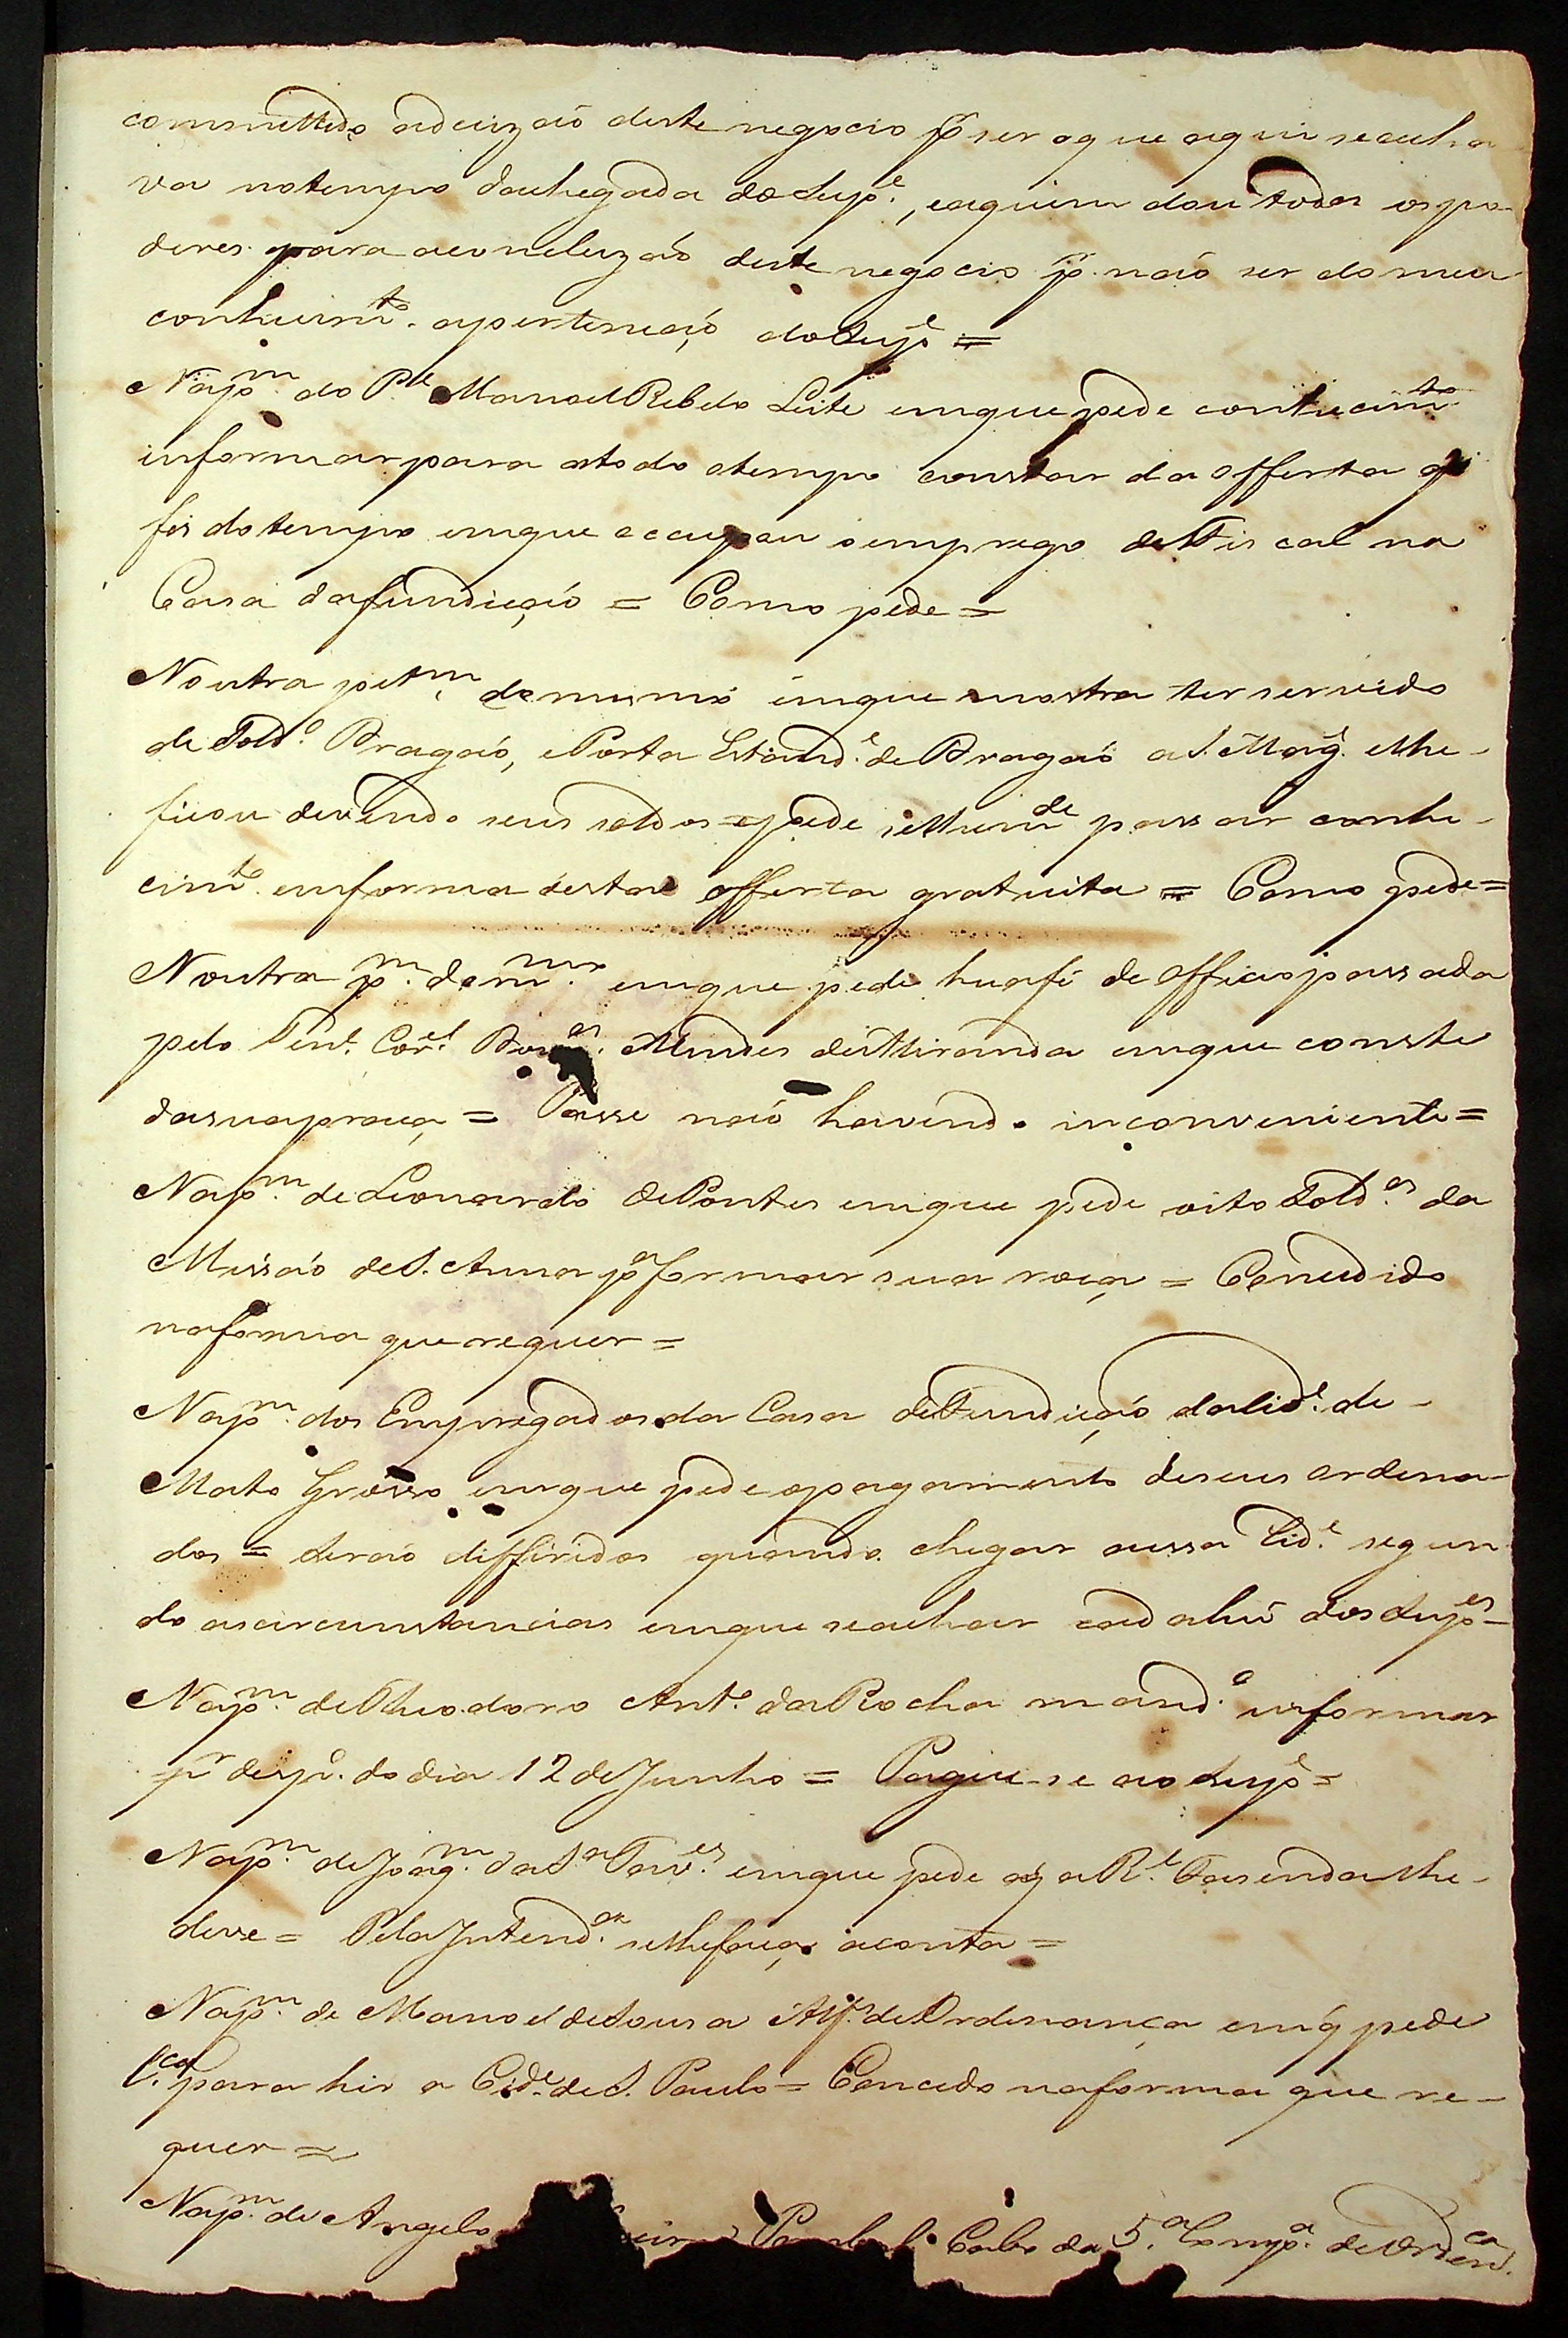 committido adecizaõ deste negocio p.r ser oque aqui seacha
va notempo dachegada do Sup.e, eaquem dou todos ospo-
deres para aconcluzaõ deste negocio p.r naõ ser domeu
conhecim.to apertencaõ do Sup.e =
Nap.m do P.e Manoel Rebelo Leite emque pede conhecim.to
informar para atodo otempo constar da offerta q̃
fes dotempo emque occupou oemprego de Fiscal na
Casa dafundiçaõ = Como pede =
Noutra pet.m domesmo emque mostra ter servido
de Sold.o Dragaõ, e Porta Estand.e de Dragaõ a S. Mag.e elhe
ficou devendo seus soldos = epede selhe m.de passar conhe-
cim.to emforma desta offerta gratuita = Como pede =
Noutra p.m dom.mo emque pede huafé de officio passada
pelo Ten.e Cor.el Mendes de Miranda emque conste
dasuapraça = Passe naõ havendo inconveniente =
Nap.m de Leonardo de Pontes emque pede oito Sold.os da
Missaõ de S. Anna p.a formar sua roça = Concedido
naforma que requer =
Nap.m dos Empregados da Casa de Fundiçaõ da Cid.e de
Mato Grosso emque pede opagamento deseus ordena-
dos = Seraõ differidos quando chegar aessa Cid.e segun
do ascircunstancias emque seachar cad ahũ dos Sup.es
Nap.m de Theodoro Ant.o da Rocha mand.o informar
p.r desp.o do dia 12 de Junho = Pague-se ao Sup.e =
Nap.m de Joaq.m da S.a Tav.es emque pede oq̃ a R.l Fasenda lhe
deve = Pela Intend.ca selhefaça aconta =
Nap.m de Manoel de Sousa Alf.s de Ordenança emq̃ pede
l.ca para hir a Cid.e de S. Paulo = Concedo naforma que re-
quer =
Nap.m de Angelo Cabo da 5.a Comp.a de Orden.ca